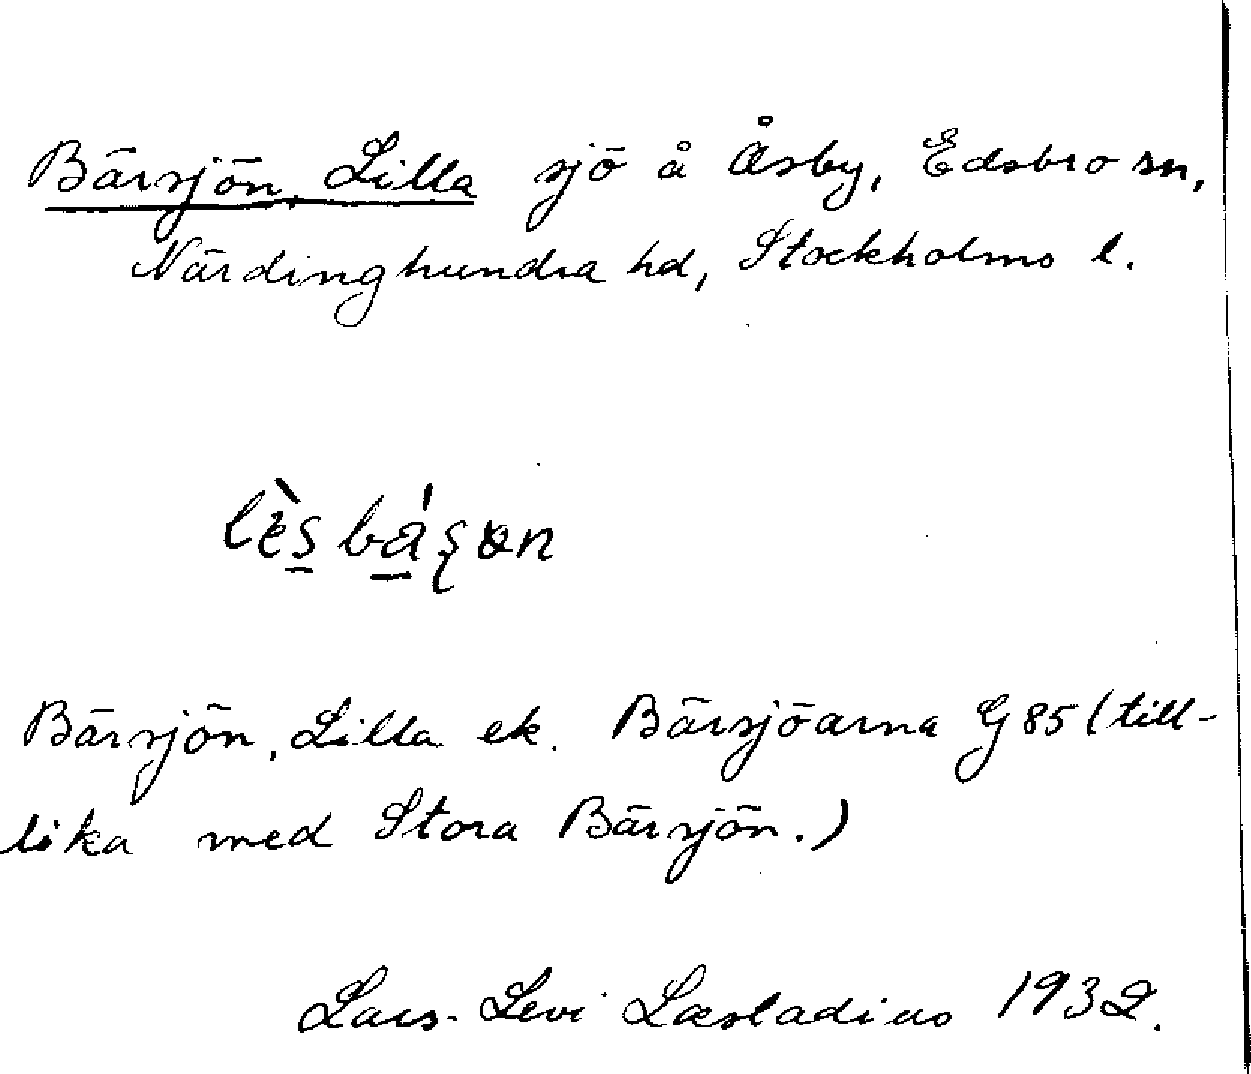 Bärsjön, Lilla sjö å Åsby, Edsbro sn,
Närdinghundra hd, Stockholms l.
Bärsjön, Lilla ek. Bärsjöarna G 85 (till-
lika med Stora Bärsjön.)
Lars-Levi Læstadius 1932.